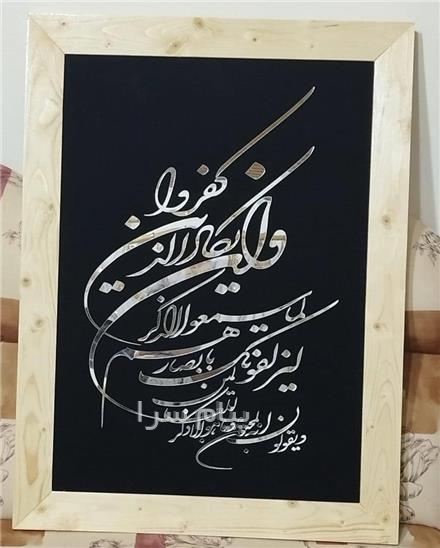 وان یکاد الذین کفروا
لیزلقونک بابصارهم
لما سمعوا الذکر
و یقولون انه لمجنون
و ما هو الا ذکر
للعالمین
پیام سرا